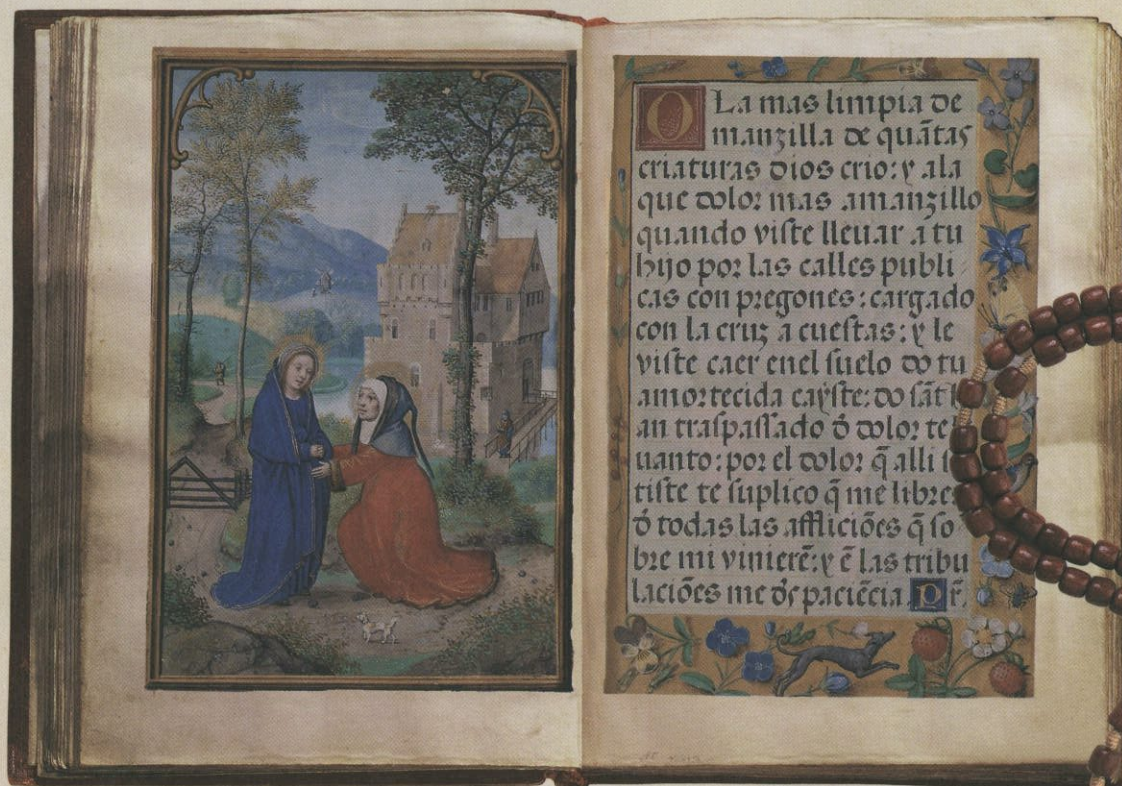 O La mas limpia de
manzilla de quãtas
criaturas dios crio: y ala
que dolor mas amanzillo
quando viste lleuar a tu
hijo por las calles publi
cas con pregones: cargado
con la cruz a cuestas: y le
viste caer enel suelo do tu
amortecida cayste: do sãt
an traspassado õ dolor te
uanto: por el dolor q̃ alli
tiste te suplico q̃ me libres
õ todas las affliciões q̃ so
bre mi vinierẽ: y ẽ las tribu
laciões me ds paciẽcia. Pr̃.